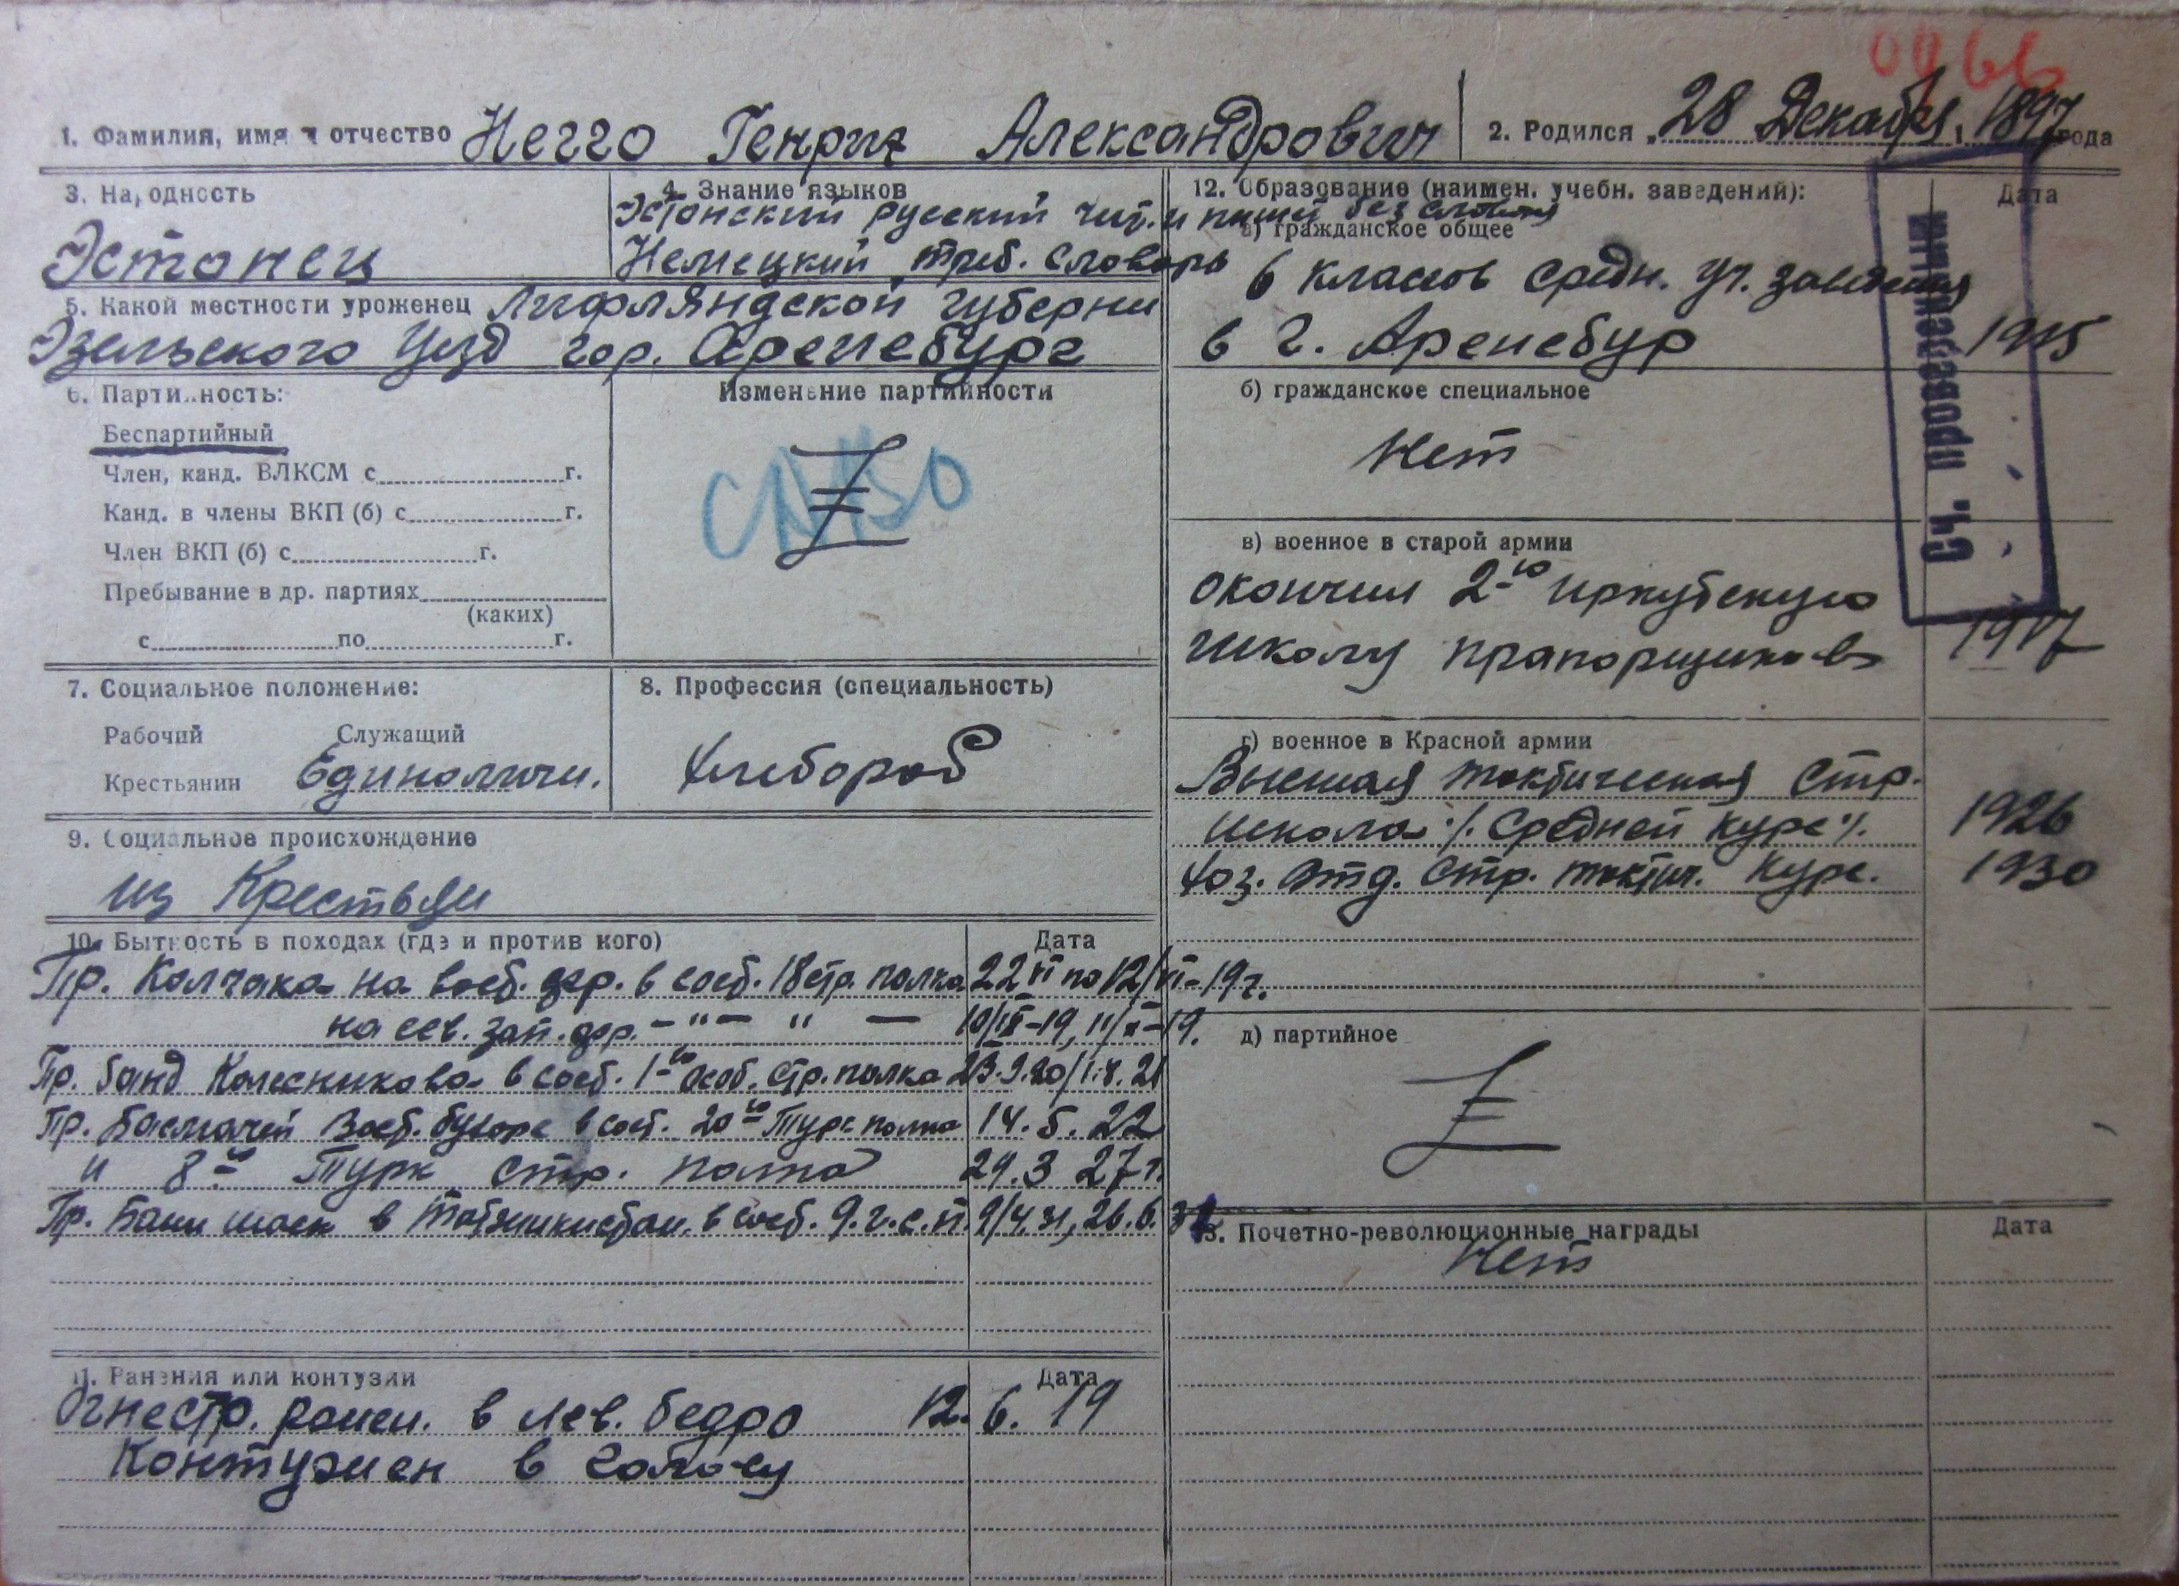 1. Фамилия, имя и отчество Негго Генрих Александрович
2. Родился „28 Декабря 1897 года
3. Народность
Эстонец
4. Знание языков
Эстонский русский чит. и пишет без словаря
Немецкий треб. словарь
5. Какой местности уроженец Лифляндской губерни
Эзельского Уезд гор. Аренсбург
6. Партийность:
Беспартийный
Член, канд. ВЛКСМ с г.
Канд. в члены ВКП (б) с г.
Член ВКП (б) с г.
Пребывание в др. партиях
(каких)
с по г.
Изменение партийности
7. Социальное положение:
Рабочий Служащий
Крестьянин Единолични.
8. Профессия (специальность)
Хлебороб
9. Социальное происхождение
из Крестьян
10. Бытность в походах (где и против кого) Дата
Пр. Колчака на вост. фр. в сост. 18 стр. полка 22 VI по 12/VI-19 г.
на сев. зап. фр. — " — " — 10/IX-19, 11/X-19.
Пр. банд Колесникова в сост. 1го особ. стр. полка 23.9.20/1.4.21
Пр. басмачей Вост. бухаре в сост. 20го Турк полка 14. 5. 22
и 8го Турк стр. полка 29.3 27 г.
Пр. Банд шаек в Тоджикистан. в сост. 9. г. с. п. 9/4.31, 26.6.31
11. Ранения или контузии Дата
Огнестр. ранен. в лев. бедро 12. 6. 19
Контужен в голову
12. Образование (наимен. учебн. заведений): Дата
а) гражданское общее
6 классов средн. уч. заведения
в г. Аренсбур 1915
б) гражданское специальное
Нет
в) военное в старой армии
окончил 2ю Иркутскую
школу прапорщиков 1917
г) военное в Красной армии
Высшая тактическая стр.
школа ·/. Средней курс ·/. 1926
Хоз. отд. стр. тактич. Курс. 1930
д) партийное
13. Почетно-революционные награды Дата
Нет